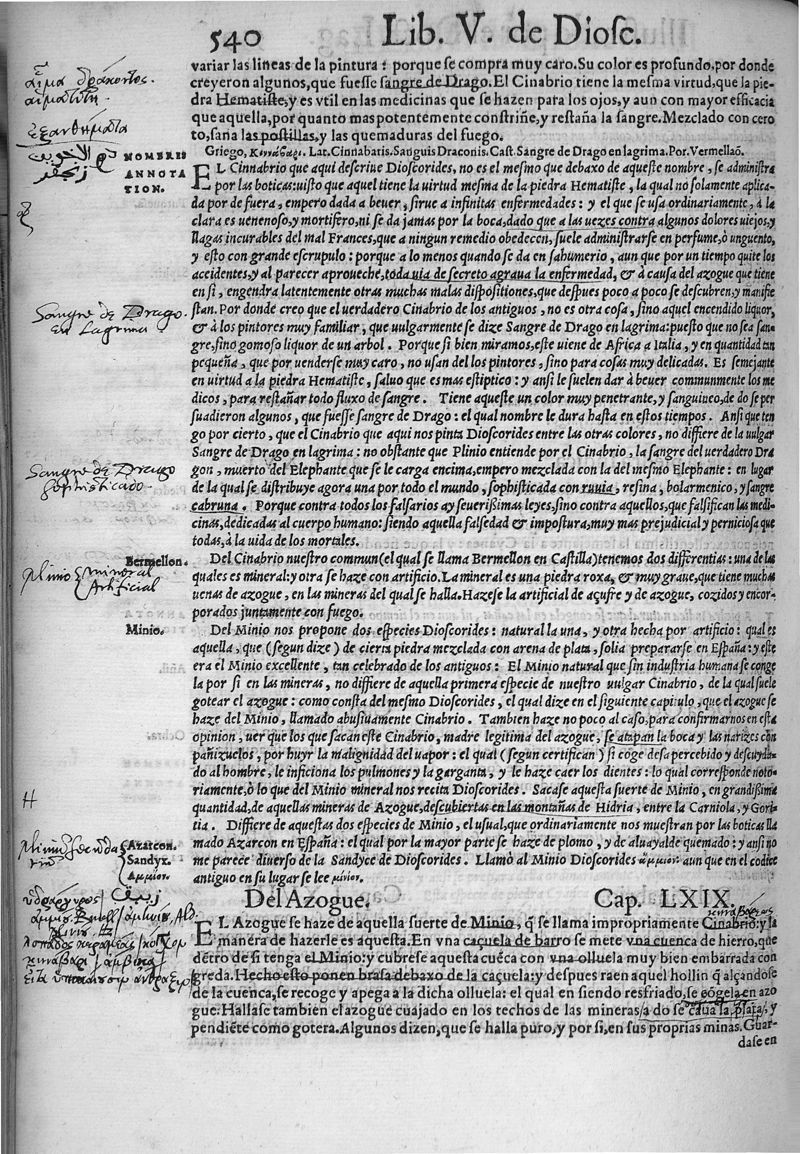 540 Lib. V. de Diosc.
variar las lineas de la pintura: porque se compra muy caro. Su color es profundo, por donde
creyeron algunos, que fuesse sangre de Drago. El Cinabrio tiene la mesma virtud, que la pie-
dra Hematiste, y es vtil en las medicinas que se hazen para los ojos, y aun con mayor efficacia
que aquella, por quanto mas potentemente constriñe, y restaña la sangre. Mezclado con cero
to, sana las postillas, y las quemaduras del fuego.
Griego, Κιννάβαρι. Lat. Cinnabaris. Sanguis Draconis. Cast. Sangre de Drago en lagrima. Por. Vermellaõ.
NOMBRES
ANNOTA
TION.
EL Cinnabrio que aqui descriue Dioscorides, no es el mesmo que debaxo de aqueste nombre, se administra
por las boticas: uisto que aquel tiene la uirtud mesma de la piedra Hematiste, la qual no solamente aplica-
da por de fuera, empero dada a beuer, sirue a infinitas enfermedades: y el que se usa ordinariamente, à la
clara es uenenoso, y mortifero, ni se da jamas por la boca, dado que a las uezes contra algunos dolores uiejos, y
llagas incurables del mal Frances, que a ningun remedio obedecen, suele administrarse en perfume, ò unguento,
y esto con grande escrupulo: porque a lo menos quando se da en sahumerio, aun que por un tiempo quite los
accidentes, y al parecer aproueche, toda uia de secreto agraua la enfermedad, & à causa del azogue que tiene
en si, engendra latentemente otras muchas malas dispositiones, que despues poco a poco se descubren, y manifie
stan. Por donde creo que el uerdadero Cinabrio de los antiguos, no es otra cosa, sino aquel encendido liquor,
& à los pintores muy familiar, que uulgarmente se dize Sangre de Drago en lagrima: puesto que no sea san-
gre, sino gomoso liquor de un arbol. Porque si bien miramos, este uiene de Africa a Italia, y en quantidad tan
pequeña, que por uenderse muy caro, no usan del los pintores, sino para cosas muy delicadas. Es semejante
en uirtud a la piedra Hematiste, saluo que es mas estiptico: y ansi le suelen dar à beuer communmente los me
dicos, para restañar todo fluxo de sangre. Tiene aqueste un color muy penetrante, y sanguineo, de do se per
suadieron algunos, que fuesse sangre de Drago: el qual nombre le dura hasta en estos tiempos. Ansi que ten
go por cierto, que el Cinabrio que aqui nos pinta Dioscorides entre las otras colores, no differe de la uulgar
Sangre de Drago en lagrima: no obstante que Plinio entiende por el Cinabrio, la sangre del uerdadero Dra
gon, muerto del Elephante que se le carga encima, empero mezclada con la del mesmo Elephante: en lugar
de la qual se distribuye agora una por todo el mundo, sophisticada con ruuia, resina, bolarmenico, y sangre
cabruna. Porque contra todos los falsarios ay seuerissimas leyes, sino contra aquellos, que falsifican las medi-
cinas, dedicadas al cuerpo humano: siendo aquella falsedad & impostura, muy mas prejudicial y perniciosa que
todas, à la uida de los mortales.
Bermellon.
Del Cinabrio nuestro commun (el qual se llama Bermellon en Castilla) tenemos dos differentias: una de las
quales es mineral: y otra se haze con artificio. La mineral es una piedra roxa, & muy graue, que tiene muchas
uenas de azogue, en las mineras del qual se halla. Hazese la artificial de açufre y de azogue, cozidos y encor-
porados juntamente con fuego.
Minio.
Del Minio nos propone dos especies Dioscorides: natural la una, y otra hecha por artificio: qual es
aquella, que (segun dize) de cierta piedra mezclada con arena de plata, solia prepararse en España: y este
era el Minio excellente, tan celebrado de los antiguos: El Minio natural que sin industria humana se conge
la por si en las mineras, no differe de aquella primera especie de nuestro uulgar Cinabrio, de la qual suele
gotear el azogue: como consta del mesmo Dioscorides, el qual dize en el siguiente capitulo, que el azogue se
haze del Minio, llamado abusiuamente Cinabrio. Tambien haze no poco al caso, para confirmarnos en esta
opinion, uer que los que sacan este Cinabrio, madre legitima del azogue, se atapan la boca y las narizes cõ
pañizuelos, por huyr la malignidad del uapor: el qual (segun certifican) si coge desapercebido y descuyda-
do al hombre, le inficiona los pulmones y la garganta, y le haze caer los dientes: lo qual corresponde noto-
riamente, à lo que del Minio mineral nos recita Dioscorides. Sacase aquesta suerte de Minio, en grandissima
quantidad, de aquellas mineras de Azogue, descubiertas en las montañas de Hidria, entre la Carniola, y Gori-
tia. Differe de aquestas dos especies de Minio, el usual, que ordinariamente nos muestran por las boticas lla
mado Azarcon en España: el qual por la mayor parte se haze de plomo, y de aluayalde quemado: y ansi no
me parece diuerso de la Sandyce de Dioscorides. Llamò al Minio Dioscorides ἄμμιον: aun que en el codice
antiguo en su lugar se lee μίνιον.
Azarcon.
Sandyx.
Ammion.
Del Azogue. Cap. LXIX.
EL Azogue se haze de aquella suerte de Minio, q̃ se llama impropriamente Cinabrio: y la
manera de hazerle es aquesta. En vna caçuela de barro se mete vna cuenca de hierro, que
dẽtro de si tenga el Minio: y cubrese aquesta cuẽca con vna olluela muy bien embarrada con
greda. Hecho esto ponen brasa debaxo de la caçuela: y despues raen aquel hollin q̃ alçandose
de la cuenca, se recoge y apega a la dicha olluela: el qual en siendo resfriado, se cõgela en azo
gue. Hallase tambien el azogue cuajado en los techos de las mineras, a do se caua la plata, y
pendiẽte como gotera. Algunos dizen, que se halla puro, y por si, en sus proprias minas. Guar-
dase en
αἷμα δράκοντος.
αἱματίτη
ἐξανθήματα
دم الاخوين
زنجفر
Sangre de Drago
en Lagrima
Sangre de Drago
sophisticado
Plinio mineral
Artificial
H
زيبق
ὑδράργυρος